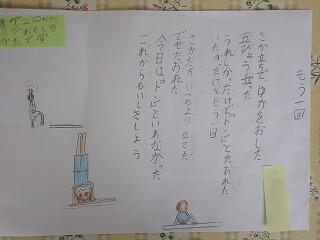 もう一回
さか立ちで ゆかをおした
五びょう立った
うれしかったけどドンとたおれた
いたかったけどもう一回
さか立ち、いつもより立てた
でもたおれた
今日は、「ドン」といわなかった
これからもいしきしよう